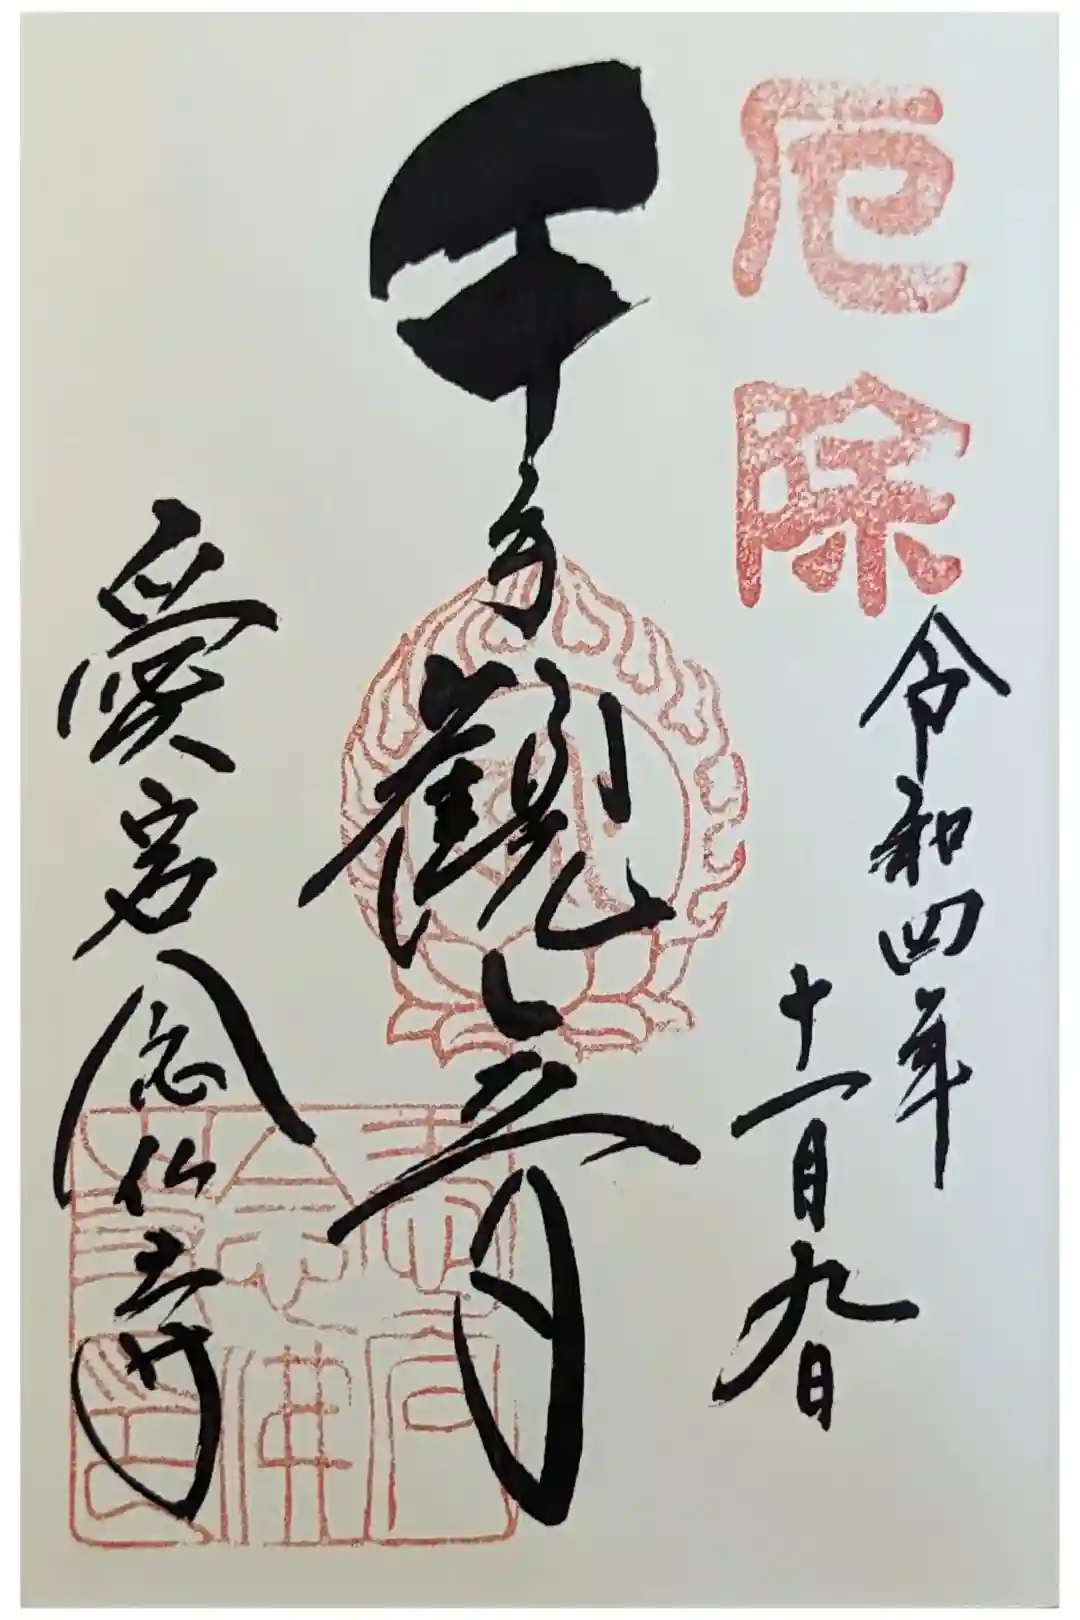 厄除
令和四年
十一月九日
千手觀音
愛宕念仏寺
念佛